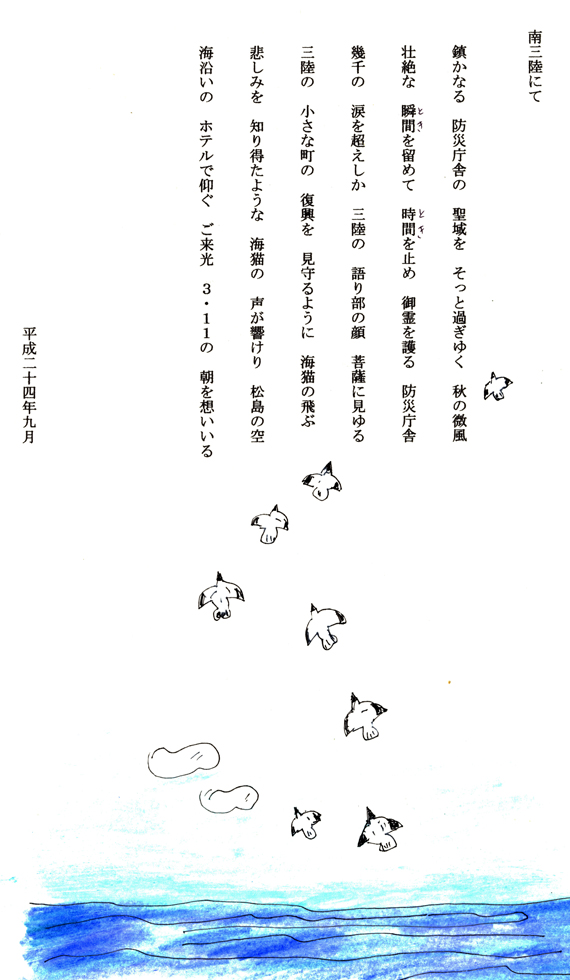 南三陸にて
鎮かなる 防災庁舎の 聖域を そっと過ぎゆく 秋の微風
壮絶な 瞬間を留めて 時間を止め 御霊を護る 防災庁舎
とき
とき
幾千の 涙を超えしか 三陸の 語り部の顔 菩薩に見ゆる
三陸の 小さな町の 復興を 見守るように 海猫の飛ぶ
悲しみを 知り得たような 海猫の 声が響けり 松島の空
海沿いの ホテルで仰ぐ ご来光 3・11の 朝を想いいる
平成二十四年九月